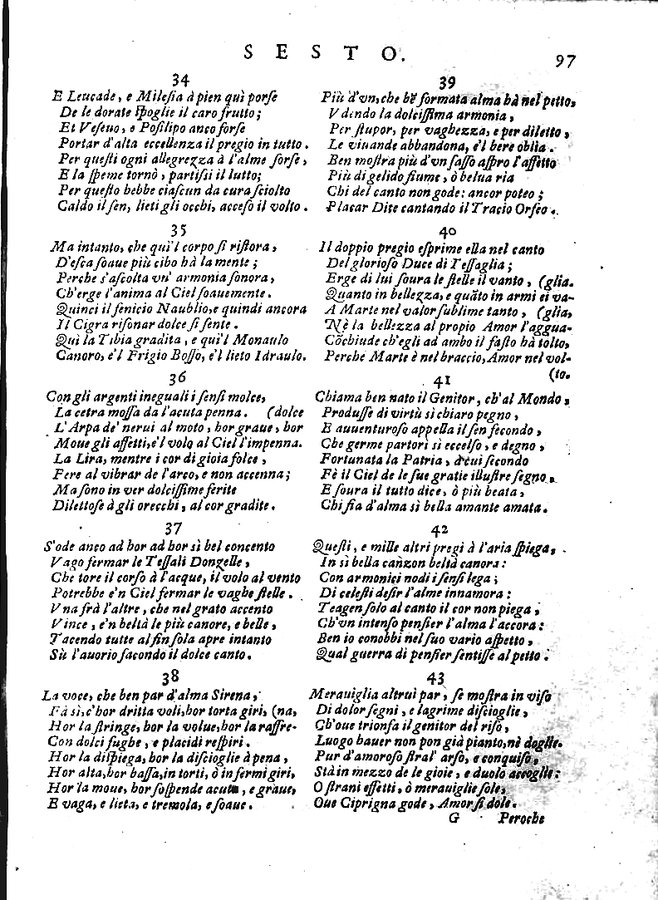 SESTO.
97
34
E Leucade, e Milesia à pien quì porse
De le dorate spoglie il caro frutto;
Et Veseuo, e Posilipo anco forse
Portar d'alta eccellenza il pregio in tutto.
Per questi ogni allegrezza à l'alme sorse,
E la speme tornò, partissi il lutto;
Per questo hebbe ciascun da cura sciolto
Caldo il sen, lieti gli occhi, acceso il volto.
35
Ma intanto, che quì'l corpo si ristora,
D'esca soaue più cibo hà la mente;
Perche s'ascolta vn' armonia sonora,
Ch'erge l'anima al Ciel soauemente.
Quinci il fenicio Naublio, e quindi ancora
Il Cigra risonar dolce si sente.
Quì la Tibia gradita, e quì'l Monaulo
Canoro, e'l Frigio Bosso, e'l lieto Idraulo.
36
Con gli argenti ineguali i sensi molce,
La cetra mossa da l'acuta penna. (dolce
L'Arpa de' nerui al moto, hor graue, hor
Moue gli affetti, e'l volo al Ciel l'impenna.
La Lira, mentre i cor di gioia folce,
Fere al vibrar de l'arco, e non accenna;
Ma sono in ver dolcissime ferite
Dilettose à gli orecchi, al cor gradite.
37
S'ode anco ad hor ad hor sì bel concento
Vago fermar le Tessali Donzelle,
Che tore il corso à l'acque, il volo al vento
Potrebbe e'n Ciel fermar le vaghe stelle.
Vna frà l'altre, che nel grato accento
Vince, e'n beltà le più canore, e belle,
Tacendo tutte al fin sola apre intanto
Sù l'auorio facondo il dolce canto.
38
La voce, che ben par d'alma Sirena,
Fà sì, c'hor dritta voli, hor torta giri, (na,
Hor la stringe, hor la volue, hor la raffre-
Con dolci fughe, e placidi respiri.
Hor la dispiega, hor la discioglie à pena,
Hor alta, hor bassa, in torti, ò in fermi giri,
Hor la moue, hor sospende acuta, e graue,
E vaga, e lieta, e tremola, e soaue.
39
Più d'vn, che bē formata alma hà nel petto,
Vdendo la dolcissima armonia,
Per stupor, per vaghezza, e per diletto,
Le viuande abbandona, e'l bere oblia.
Ben mostra più d'vn sasso aspro l'affetto
Più di gelido fiume, ò belua ria
Chi del canto non gode: ancor poteo;
Placar Dite cantando il Tracio Orfeo.
40
Il doppio pregio esprime ella nel canto
Del glorioso Duce di Tessaglia;
Erge di lui soura le stelle il vanto, (glia.
Quanto in bellezza, e quāto in armi ei va-
A Marte nel valor sublime tanto, (glia,
Nè la bellezza al propio Amor l'aggua-
Cōchiude ch'egli ad ambo il fasto hà tolto,
Perche Marte è nel braccio, Amor nel vol-
(to.
41
Chiama ben nato il Genitor, ch'al Mondo,
Produsse di virtù sì chiaro pegno,
E auuenturoso appella il sen fecondo,
Che germe partorì sì eccelso, e degno,
Fortunata la Patria, à cui secondo
Fè il Ciel de le sue gratie illustre segno,
E soura il tutto dice, ò più beata,
Chi sia d'alma sì bella amante amata.
42
Questi, e mille altri pregi à l'aria spiega,
In sì bella canzon beltà canora:
Con armonici nodi i sensi lega;
Di celesti desir l'alme innamora:
Teagen solo al canto il cor non piega,
Ch'vn intenso pensier l'alma l'accora:
Ben io conobbi nel suo vario aspetto,
Qual guerra di pensier sentisse al petto.
43
Merauiglia altrui par, se mostra in viso
Di dolor segni, e lagrime discioglie,
Ch'oue trionfa il genitor del riso,
Luogo hauer non pon già pianto, nè doglie.
Pur d'amoroso stral' arso, e conquiso,
Stà in mezzo de le gioie, e duolo accoglie:
O strani effetti, ò merauiglie sole,
Oue Ciprigna gode, Amor si dole.
G Peroche